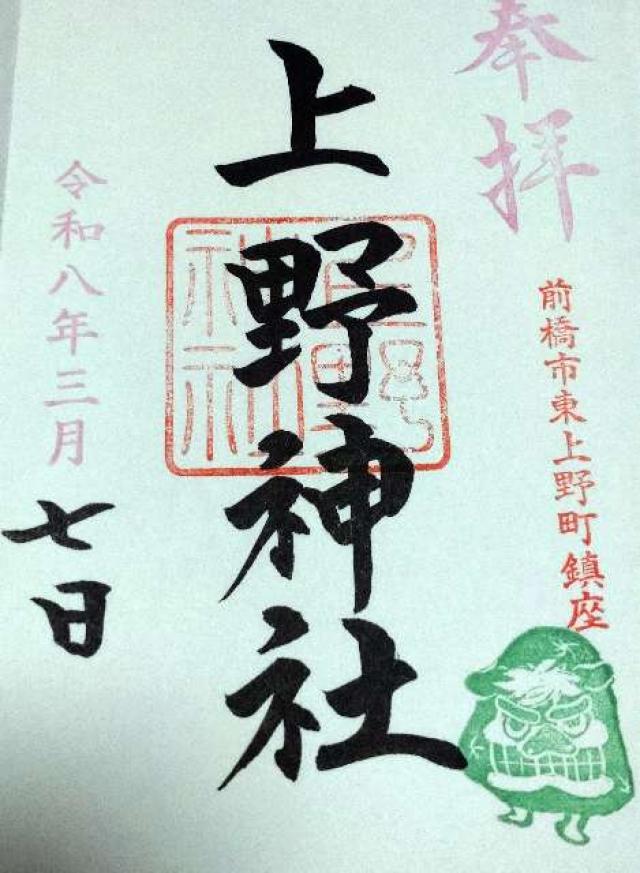 奉拝
前橋市東上野町鎮座
上野神社
上野神社
令和八年三月
七日